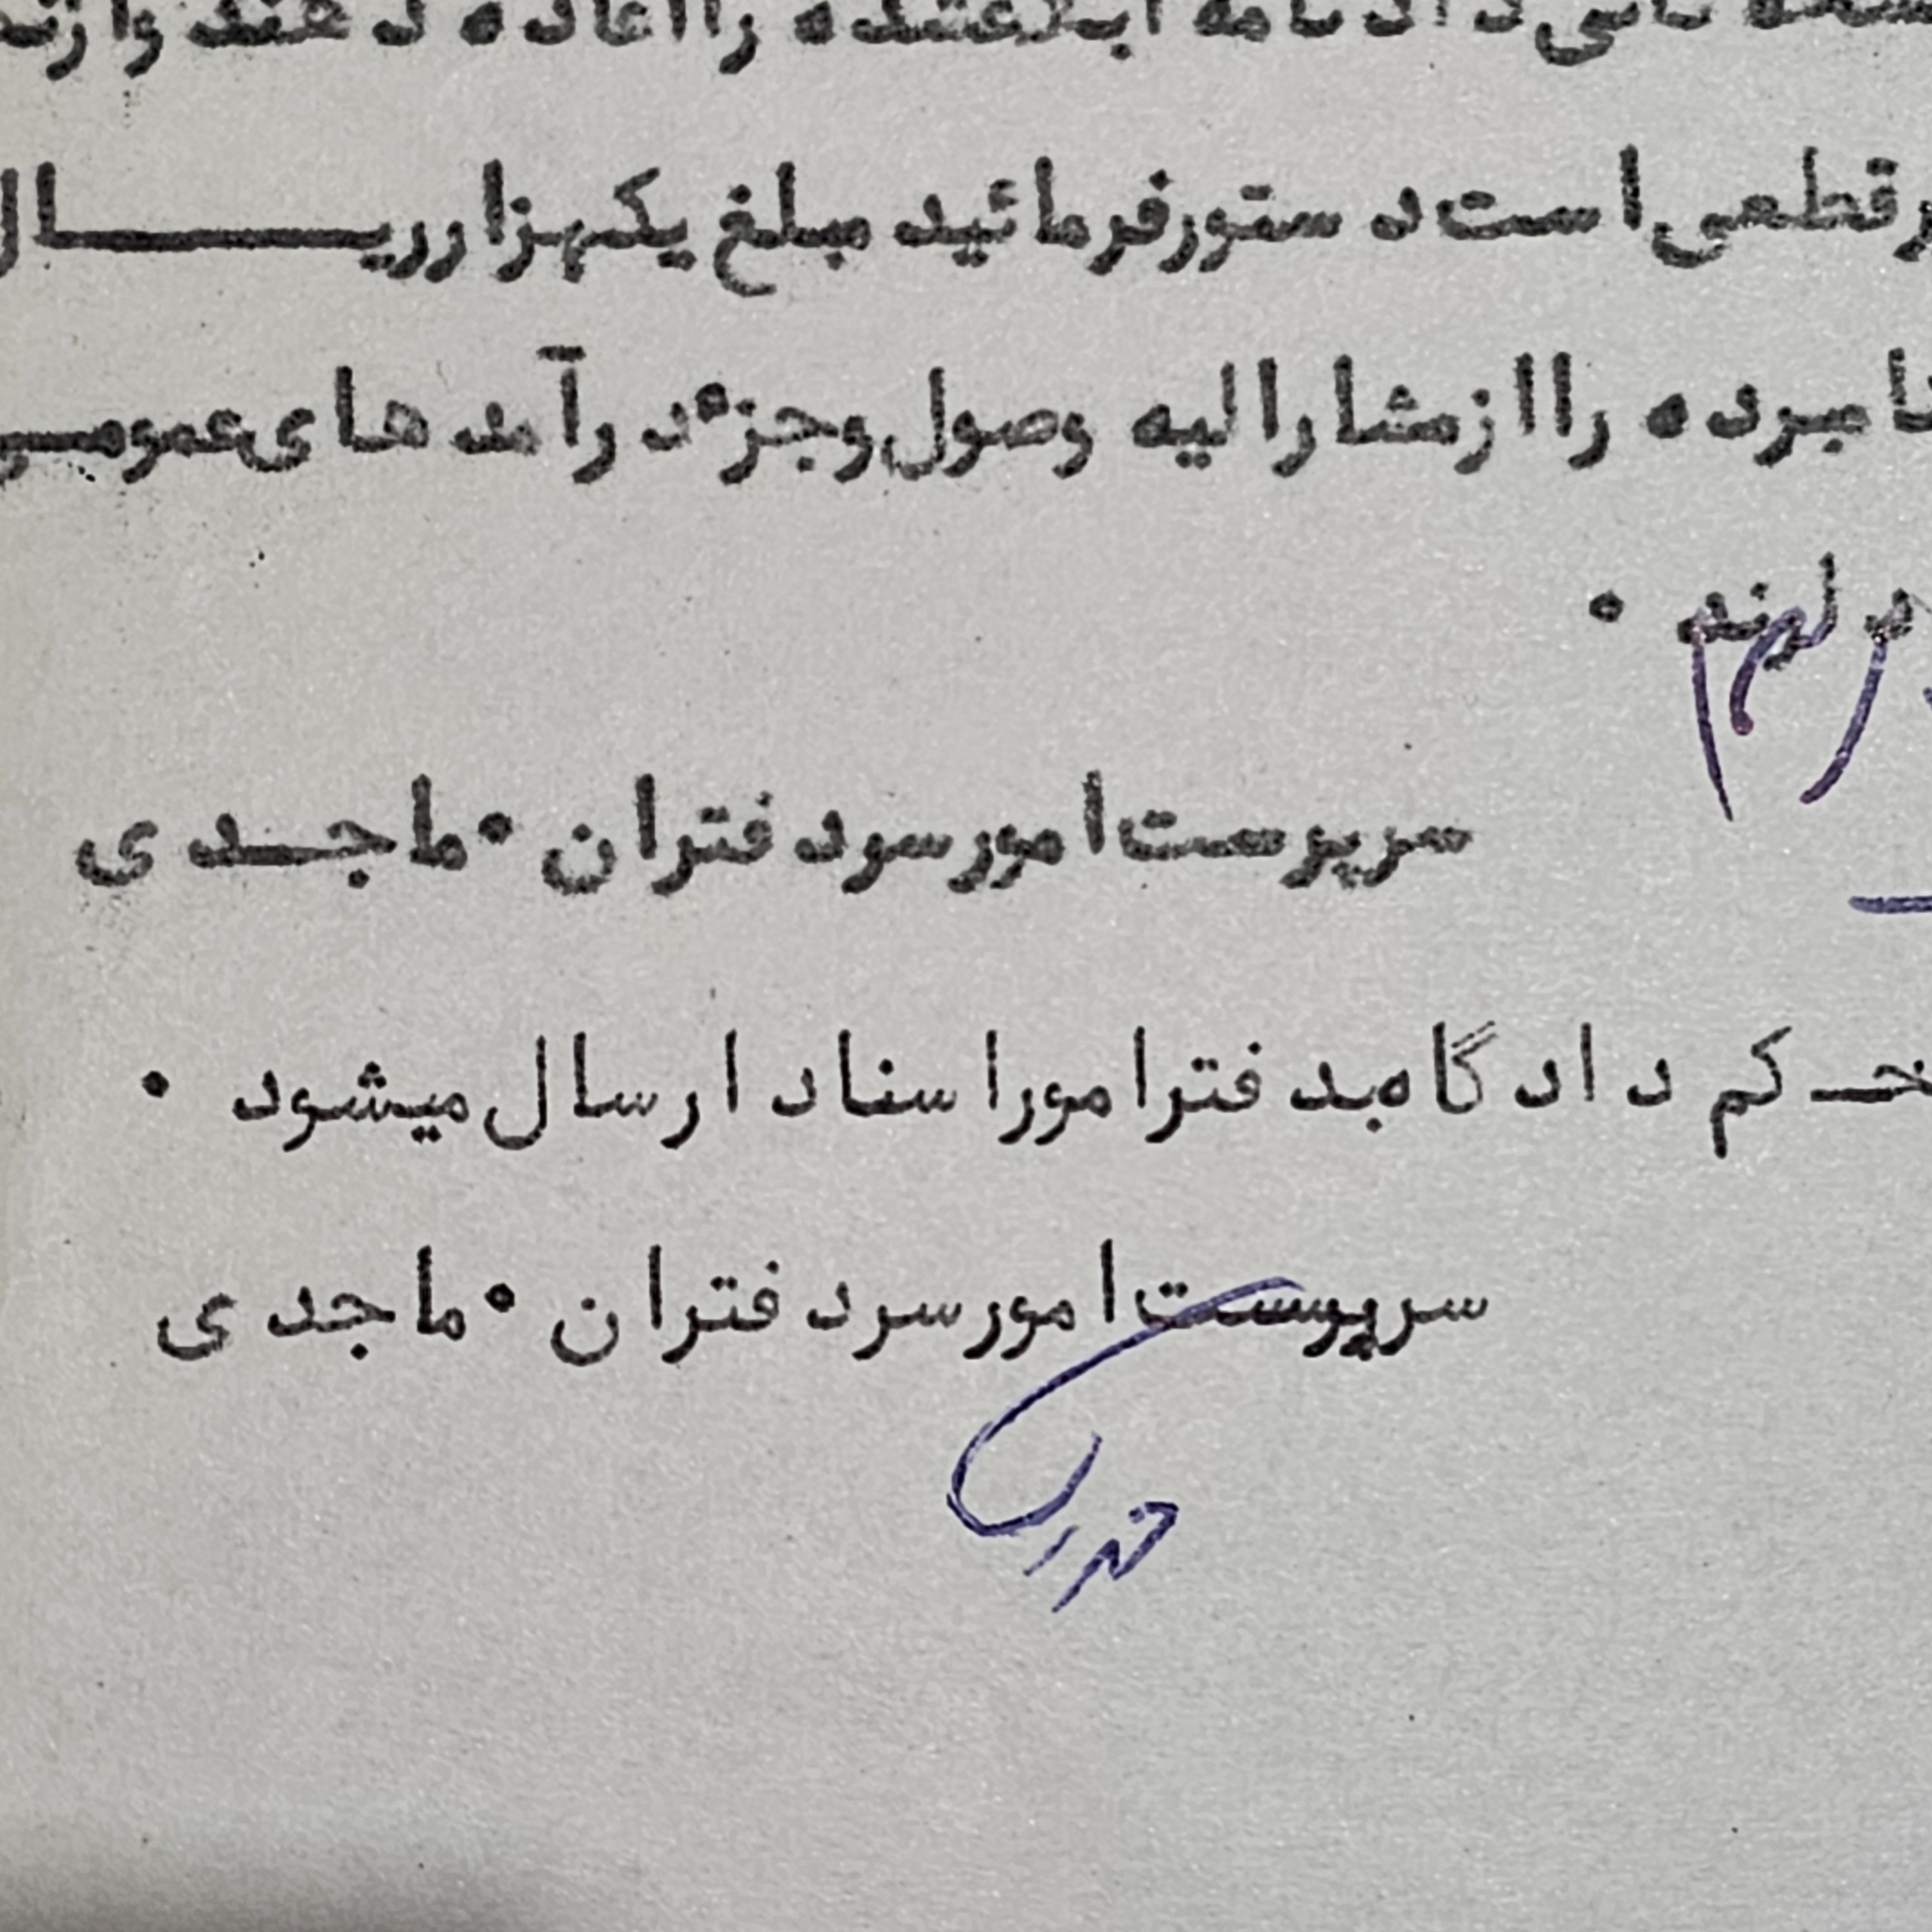 نامه ابلاغشده را اعاده دهند و از
قطعی است دستور فرمائید مبلغ یکهزار ریـــــال
نامبرده را از مشارالیه وصول و جزء درآمدهای عمومی
نمایند .
سرپرست امور سردفتران . ماجدی
حکم دادگاه بدفتر امور اسناد ارسال میشود .
سرپرست امور سردفتران . ماجدی